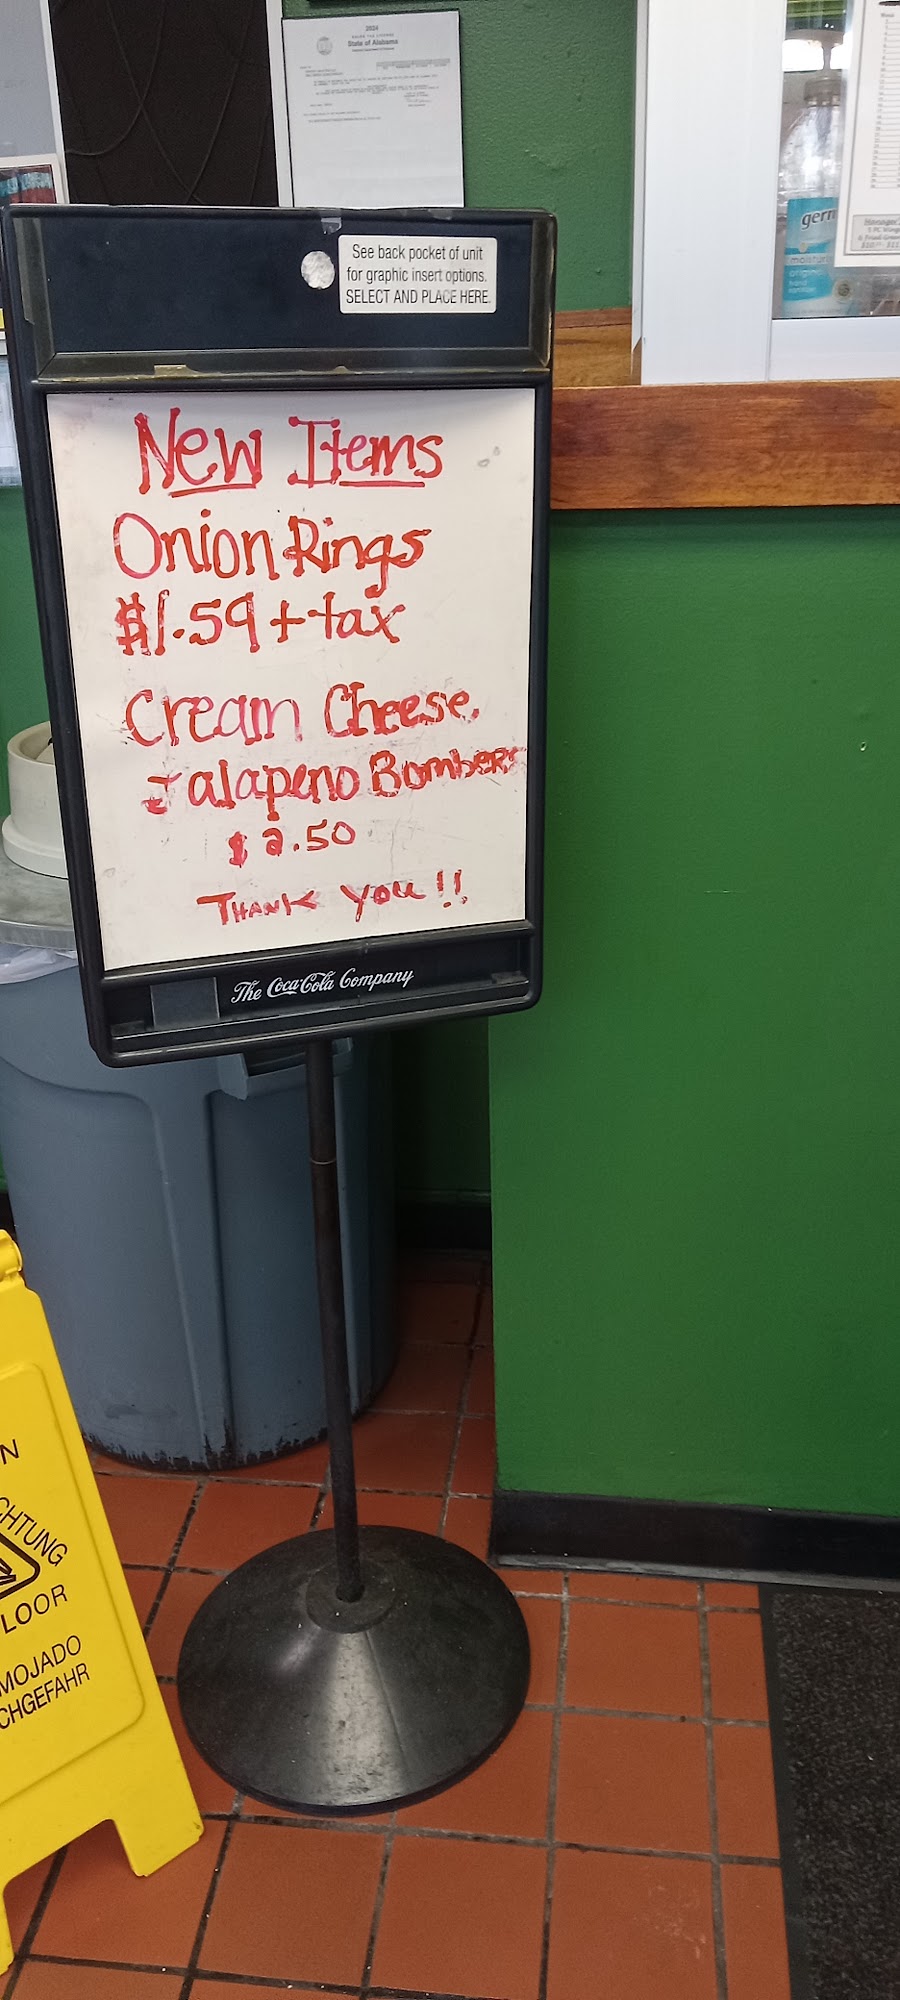 2024
State of Alabama
See back pocket of unit
for graphic insert options.
SELECT AND PLACE HERE.
New Items
Onion Rings
$1.59 + tax
Cream Cheese,
Jalapeno Bombers
$2.50
THANK YOU!!
The Coca-Cola Company
germ
moistur
original
hand
sanitizer
N
CHTUNG
LOOR
MOJADO
CHGEFAHR